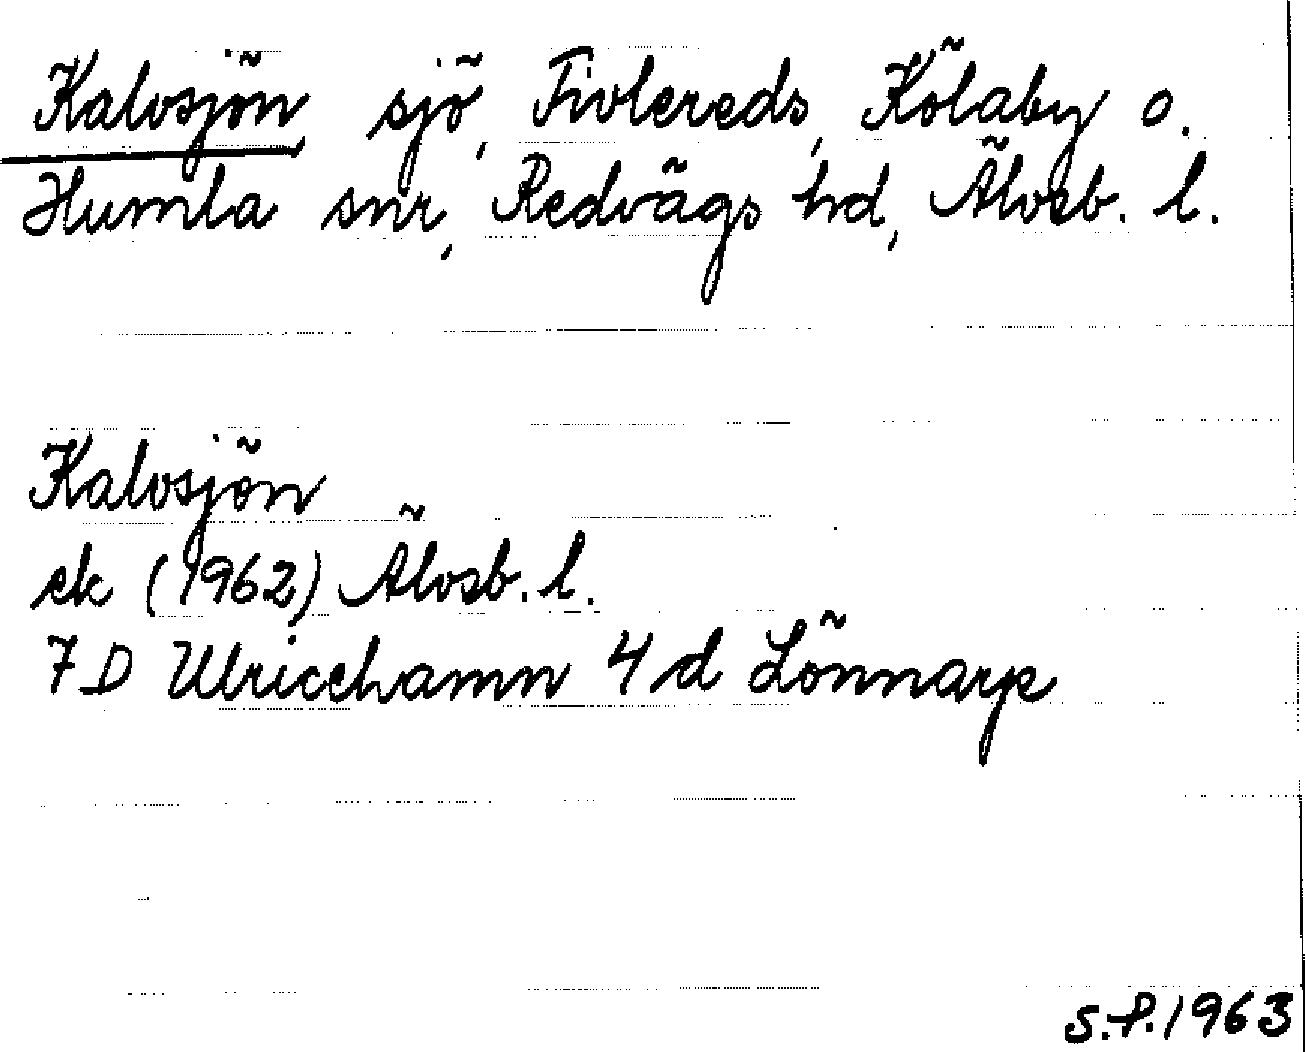 Kalvsjön, sjö, Fivlereds, Kölaby o.
Humla snr, Redvägs hd, Älvsb. l.
Kalvsjön
ek (1962) Älvsb. l.
7 D Ulricehamn 4 d Lönnarp
S.P. 1963